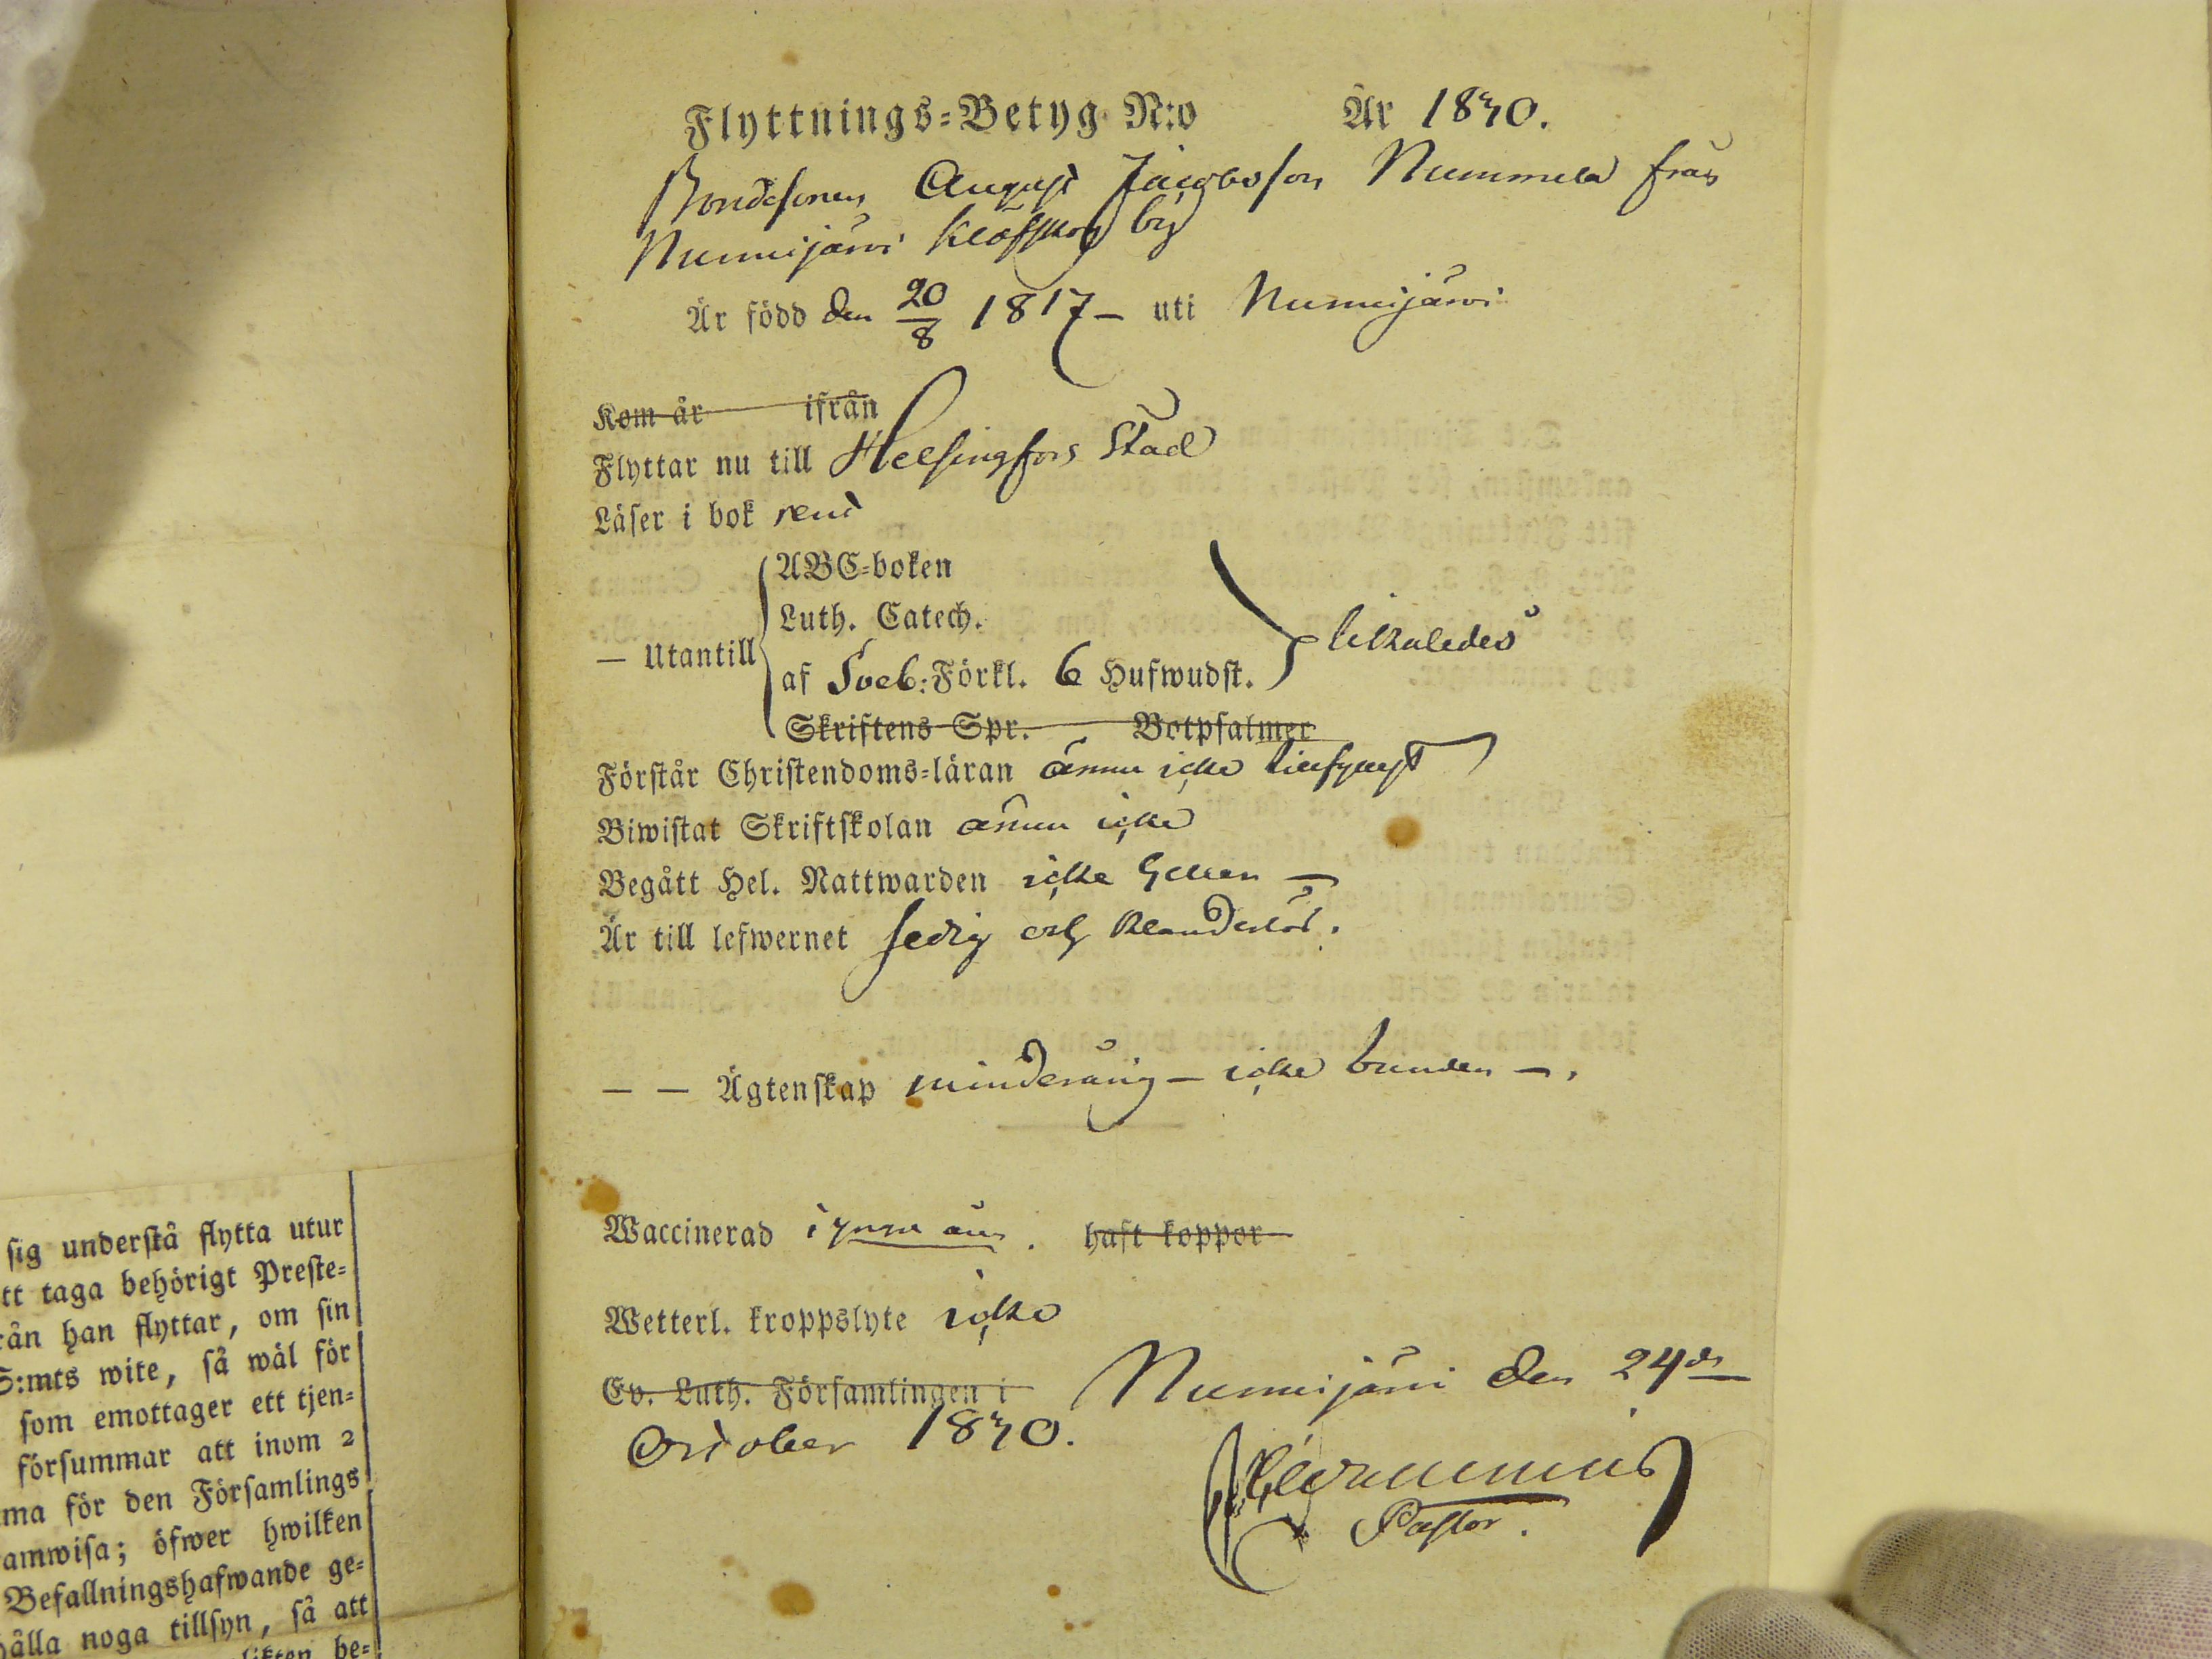 Flyttnings-Betyg N:o År 1830.
Bondesonen August Jacobsson Nummela från
Nurmijärvi Klöfskog by
Är född den 20/8 1817 – uti Nurmijärvi
Kom år ifrån
Flyttar nu till Helsingfors Stad
Läser i bok rent
ABC-boken
Luth. Catech.
— Utantill
af Sveb: Förkl. 6 Hufwudst. likaledes
Skriftens Spr. Botpsalmer
Förstår Christendoms-läran ännu icke
Biwistat Skriftskolan ännu icke
Begått Hel. Nattwarden icke heller —
Är till lefwernet sedig och klanderlös.
— — Ägtenskap minderårig – icke bunden –.
Waccinerad i yngre åren. haft koppor
Wetterl. kroppslyte icke
Ev. Luth. Församlingen i Nurmijärvi den 24de
October 1830.
Pastor.
sig understå flytta utur
tt taga behörigt Preste-
rån han flyttar, om sin
S:mts wite, så wäl för
som emottager ett tjen-
försummar att inom 2
ma för den Församlings
amwisa; öfwer hwilken
Befallningshafwande ge-
hålla noga tillsyn, så att
be-